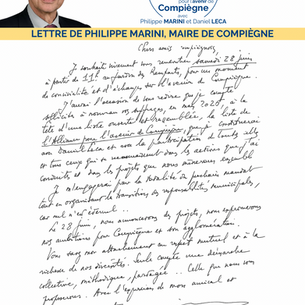 pour l'avenir de
Compiègne
avec
Philippe MARINI et Daniel LECA
LETTRE DE PHILIPPE MARINI, MAIRE DE COMPIÈGNE
Chers amis
Je souhaite vivement vous rencontrer samedi 28 juin
à partir de 11h
de convivialité et d'échange sur l'avenir de Compiègne
J'aurai l'occasion de vous redire que je compte
solliciter à nouveau vos suffrages, en mars 2020, à la
tête d'une liste ouverte et rassemblée, la liste de
l'Alliance pour l'avenir de Compiègne, que je
avec Daniel Leca et avec la participation de toutes celles
et tous ceux qui se reconnaissent dans les actions que j'ai
conduites et dans les projets que nous mènerons ensemble
Je m'engagerai pour la totalité du prochain mandat
tout en organisant la transition des responsabilités municipales,
car nul n'est éternel...
Le 28 juin, nous annoncerons des projets, nous exprimerons
nos ambitions pour Compiègne et son agglomération.
Vous savez mon attachement au respect mutuel et à la
richesse de nos diversités. Seule compte une démarche
collective, méthodique, partagée... Celle que nous vous
proposerons. Avec l'expression de mon amical et